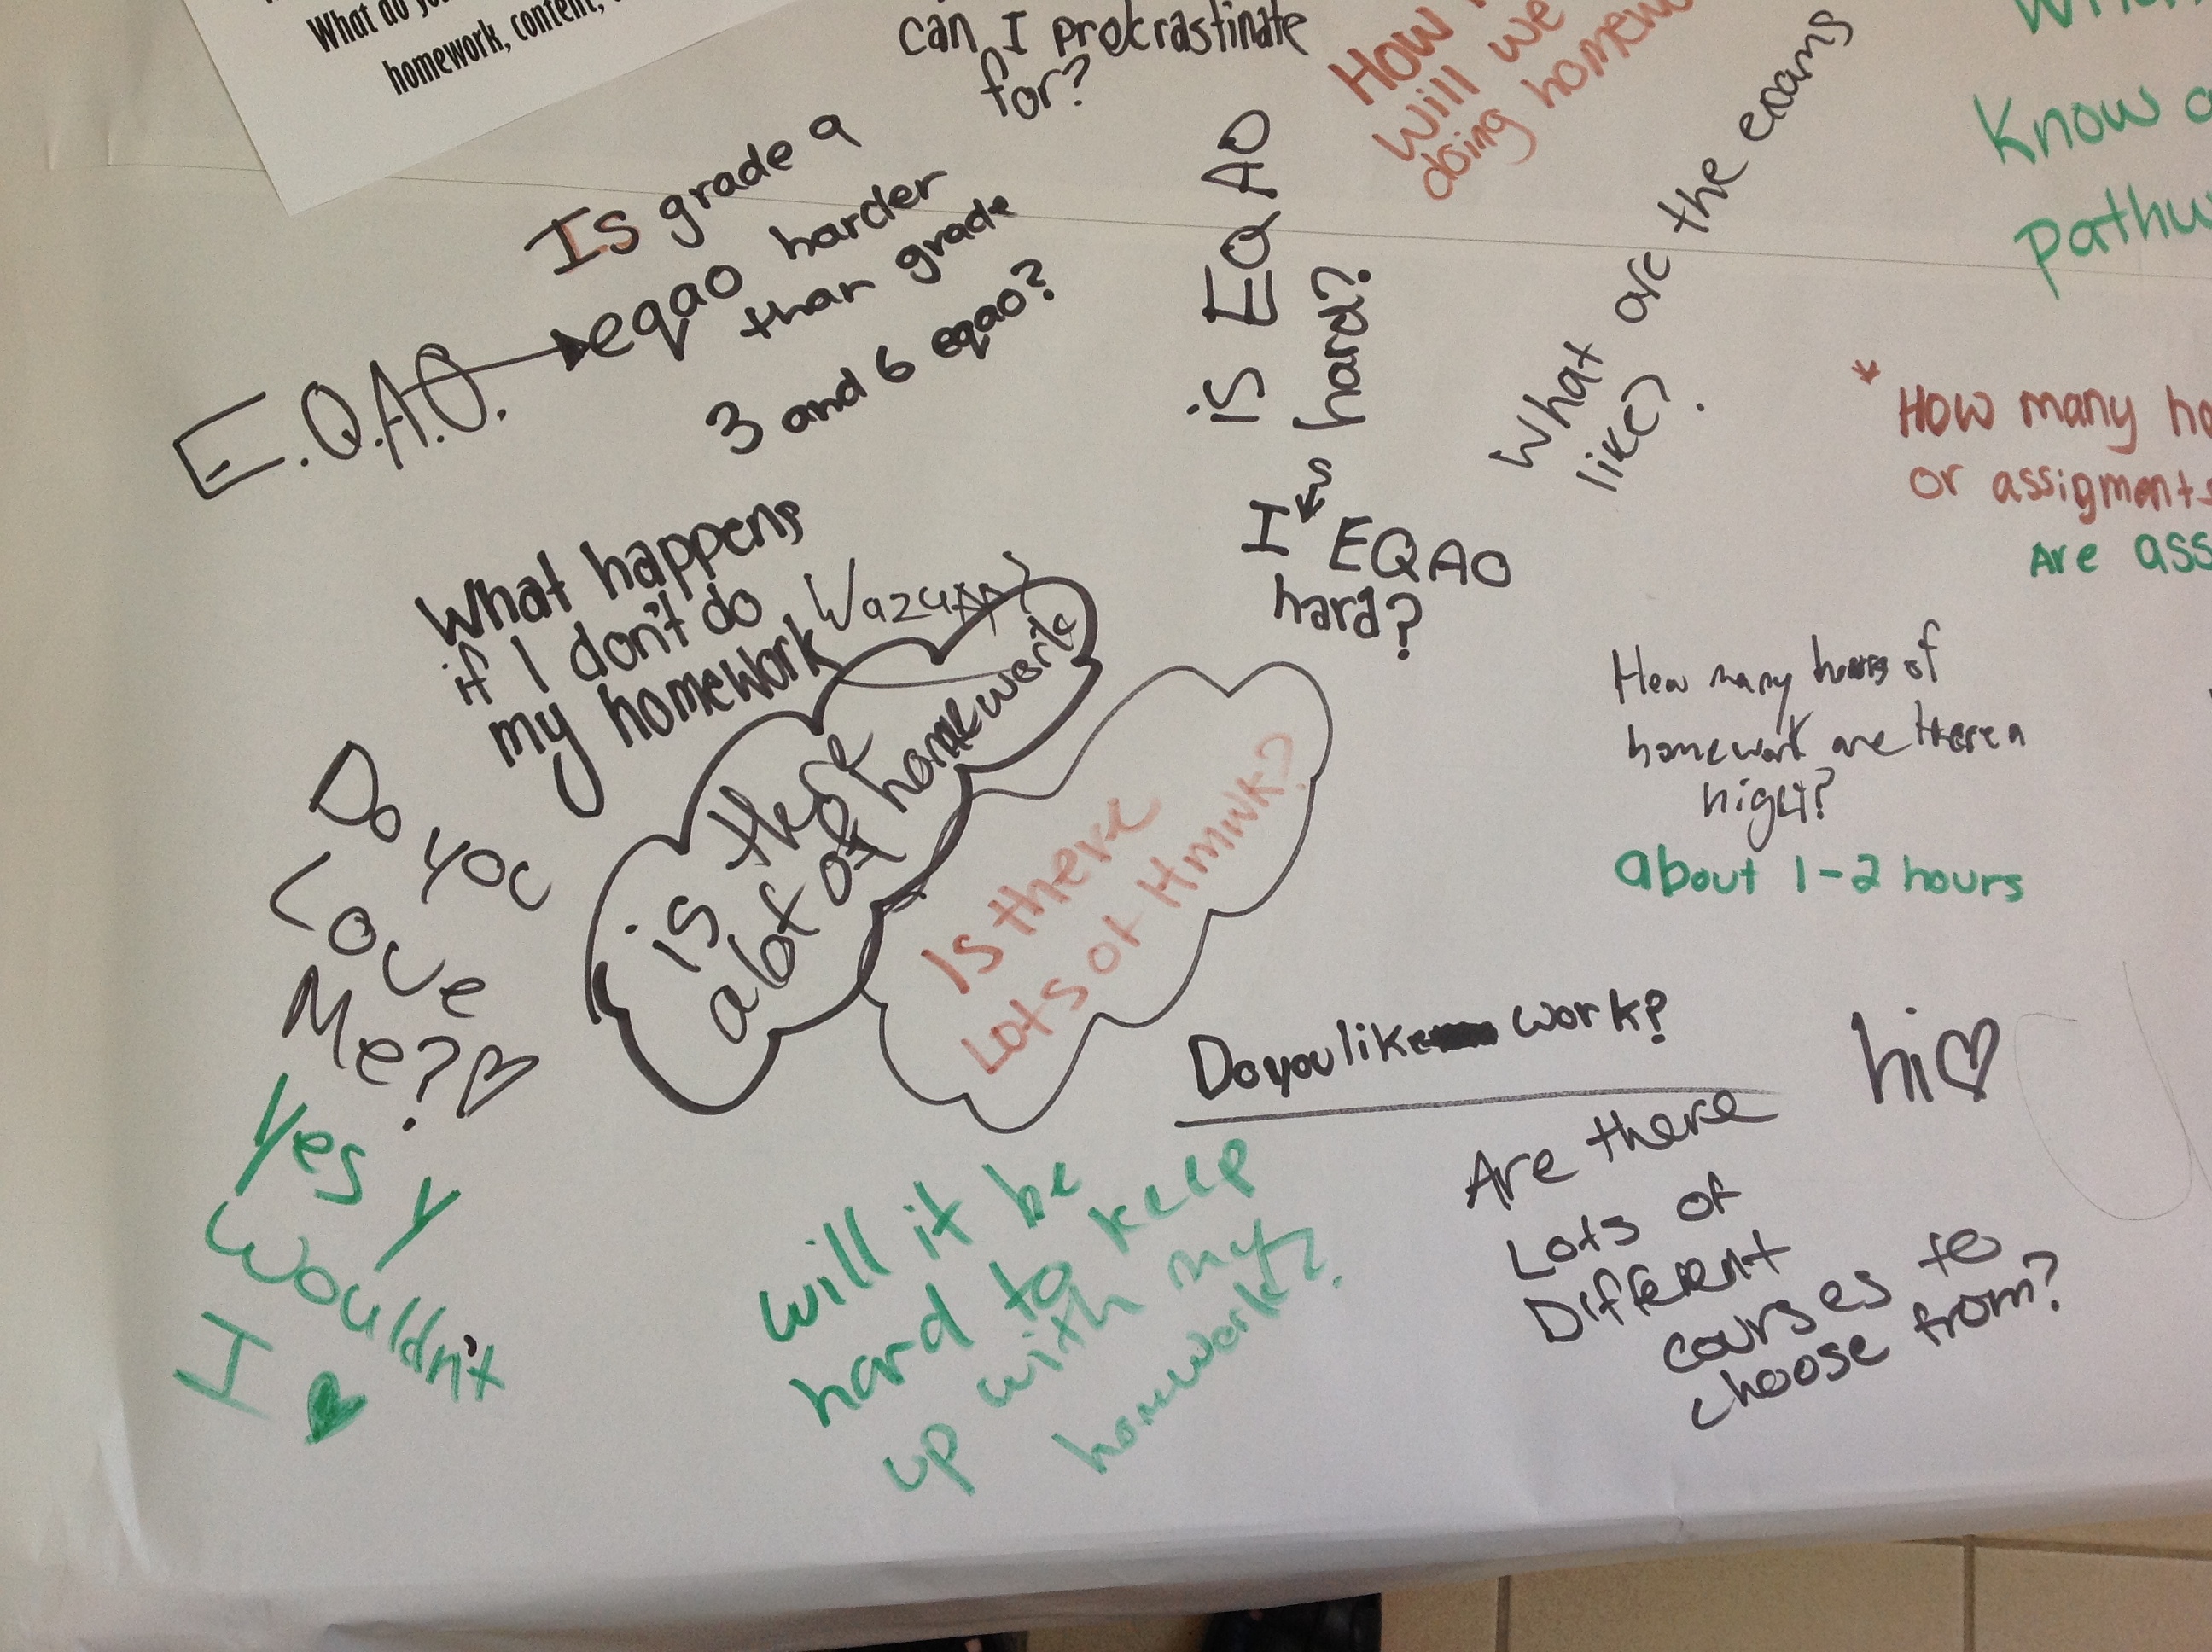 What do
homework, content,
can I procrastinate
for?
How
will we
doing
What are the exams
like?
Know
Is grade 9
eqao harder
than grade
3 and 6 eqao?
E.Q.A.O.
is EQAO
hard?
Is EQAO
hard?
* How many
or assigments
Are
What happens
if I don't do
my homework
is there
alot of homework
Is there
Lots of Hmwk?
How many hours of
homework are there a
night?
about 1-2 hours
Do you
Love
Me? ♡
Yes Y
Wouldn't
I ♥
Do you like work?
hi♡
Are there
Lots of
Different
courses to
choose from?
will it be
hard to keep
up with my
homework?